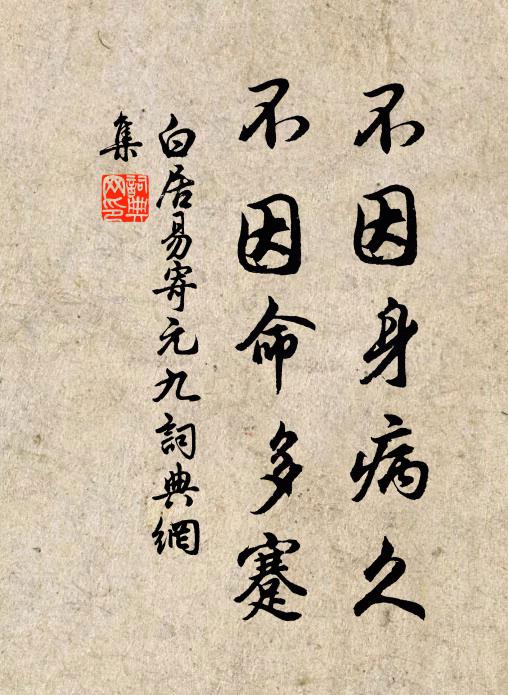 不因身病久
不因命多蹇
白居易寄元九詞典網
集
詞典网印